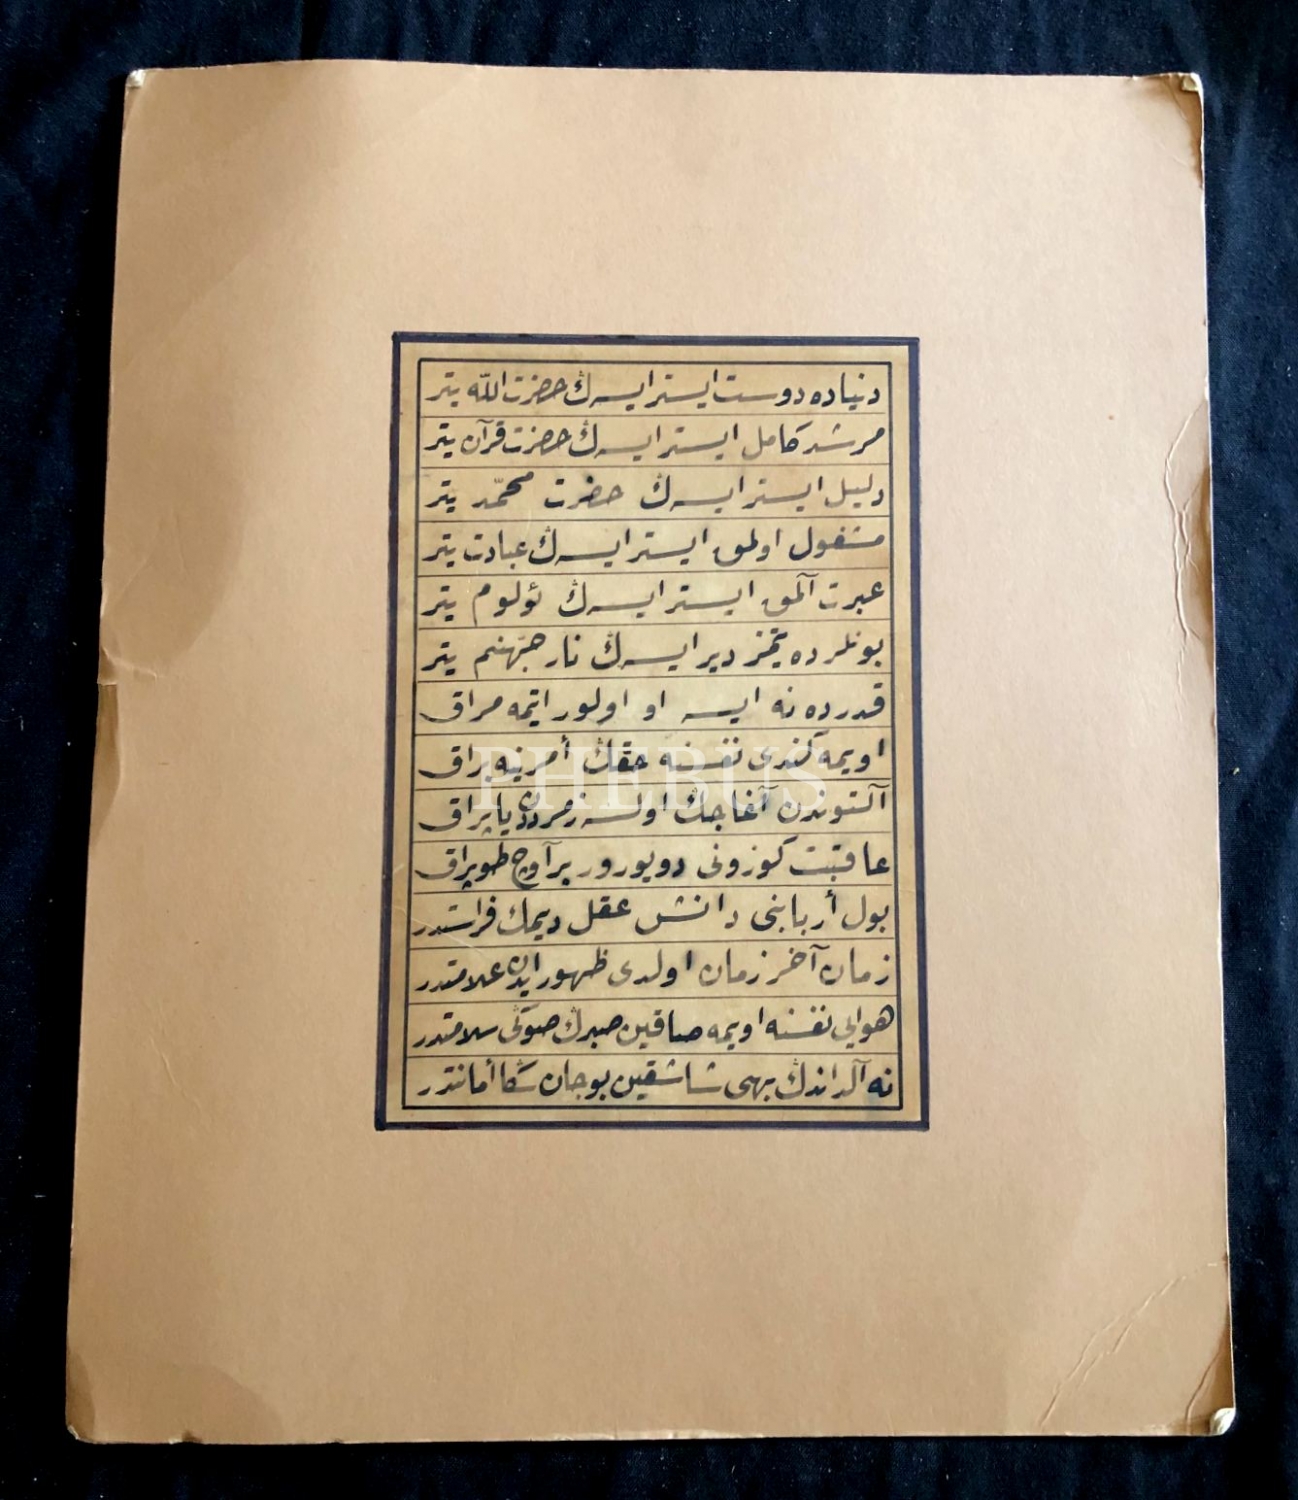 دنیاده دوست ایستر ایسه‌ڭ حضرت اللّه یتر
مرشد کامل ایستر ایسه‌ڭ حضرت قرآن یتر
دلیل ایستر ایسه‌ڭ حضرت محمّد یتر
مشغول اولمق ایستر ایسه‌ڭ عبادت یتر
عبرت آلمق ایستر ایسه‌ڭ ئولوم یتر
بونلرده یتمز دیر ایسه‌ڭ نار جهنم یتر
قدرده نه ایسه او اولور ایتمه مراق
اویمه کندی نفسنه حقڭ أمرینه براق
آلتوندن آغاجڭ اولسه زمرددن یاپراق
عاقبت کوزونی دویورور بر آوچ طوپراق
بول أربابنی دانش عقل دیمك فراستدر
زمان آخر زمان اولدی ظهور ایدن علامتدر
هوای نفسنه اویمه صاقین صبرڭ صوڭی سلامتدر
نه آلداندڭ بهی شاشقین بو جان سڭا أمانتدر
PHEBUS